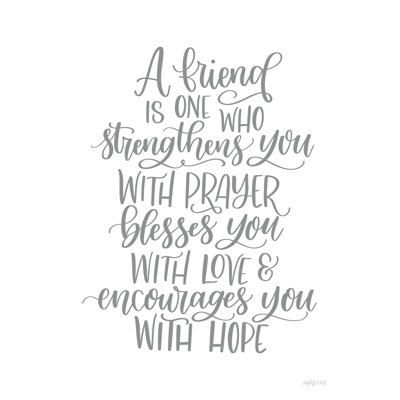 A friend
IS ONE WHO
strengthens you
WITH PRAYER
blesses you
WITH LOVE &
encourages you
WITH HOPE